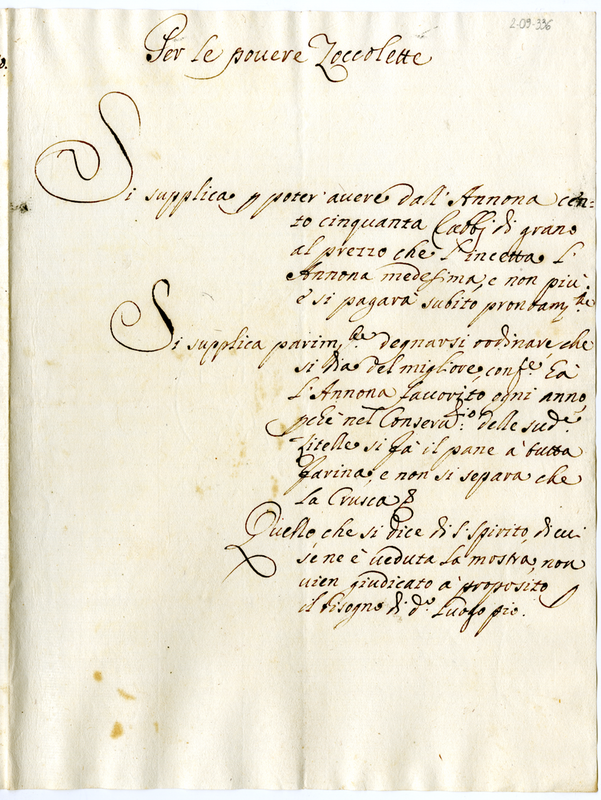 2-09-336
Per le povere Zoccolette
Si supplica p poter' avere dall' Annona cen=
to cinquanta Rubbj di grano
al prezzo che l'incetta l'
Annona medesima, e non più,
e si pagarà subito prontam.te
Si supplica parim.te degnarsi ordinare, che
si dia del migliore, conf.e hà
l'Annona favorito ogni anno
pchè nel Conserv.rio delle sud.e
Zitelle si fà il pane à tutta
farina, e non si separa che
la Crusca
Quello che si dice di S. Spirito, di cui
se ne è veduta la mostra, non
vien giudicato à proposito
il bisogno di d.o Luogo pio.